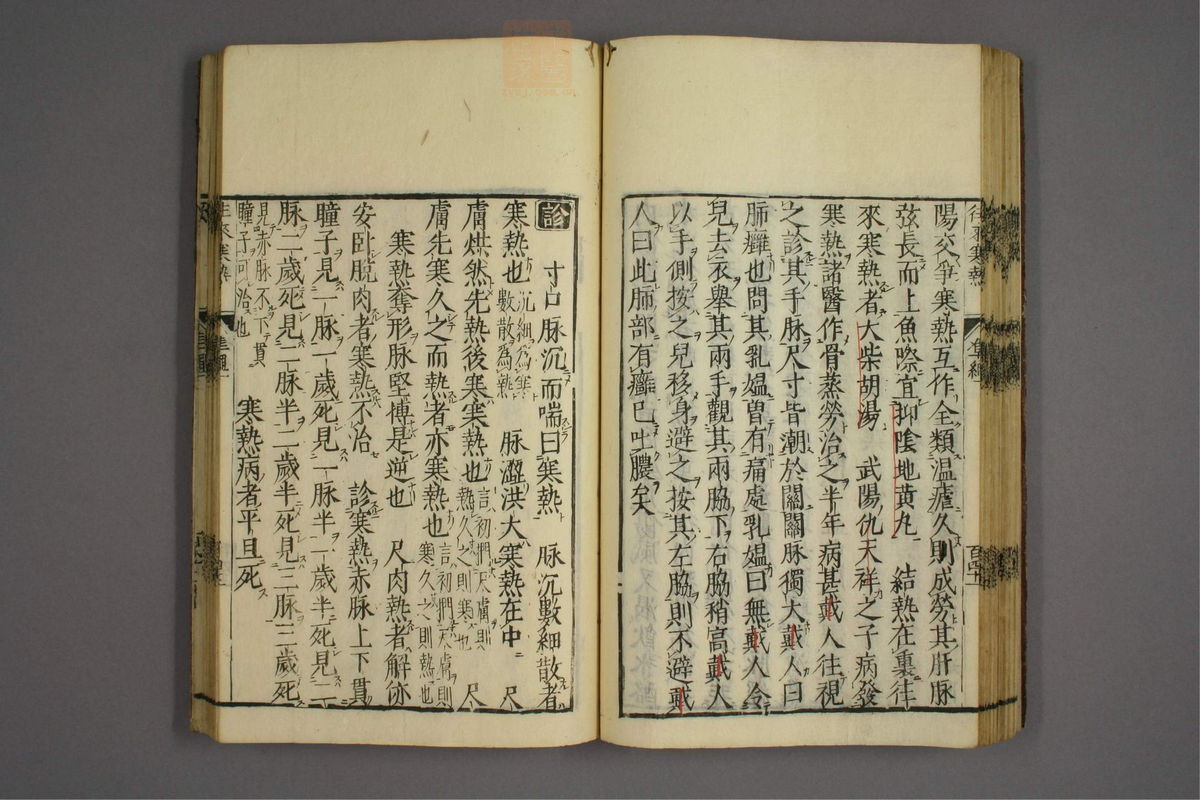 陽交爭寒熱互作全類温瘧久則成勞其肝脉
弦長而上魚際宜抑陰地黄丸　結熱在裏往
來寒熱者大柴胡湯　武陽仇天祥之子病發
寒熱諸醫作骨蒸勞治之半年病甚戴人往視
之診其手脉尺寸皆潮於關關脉獨大戴人曰
肺癰也問其乳媪曽有痛處乳媪曰無戴人令
兒去衣舉其兩手觀其兩脇下右脇稍高戴人
以手側按之兒移身避之按其左脇則不避戴
人曰此肺部有癰已吐膿矣
診　寸口脉沉而喘曰寒熱　脉沉數細散者
寒熱也沉細爲寒數散爲熱　脉澀洪大寒熱在中　尺
膚烘然先熱後寒寒熱也言初捫天膚則熱久之則寒也　尺
膚先寒久之而熱者亦寒熱也言初捫天膚則寒久之則熱也
寒熱奪形脉堅慱是逆也　尺肉熱者解㑊
安卧脱肉者寒熱不治　診寒熱赤脉上下貫
瞳子見一脉一歲死見一脉半一歲半死見二
脉二歲死見二脉半二歲半死見三脉三歲死
見赤脉不下貫瞳子可治也　寒熱病者平旦死